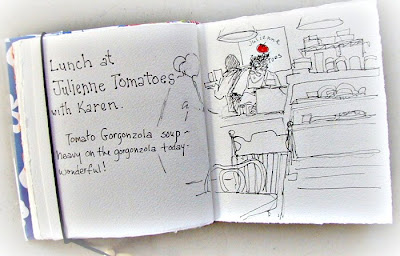 Lunch at
Julienne Tomatoes
with Karen.
Tomato Gorgonzola soup -
heavy on the gorgonzola today -
wonderful!